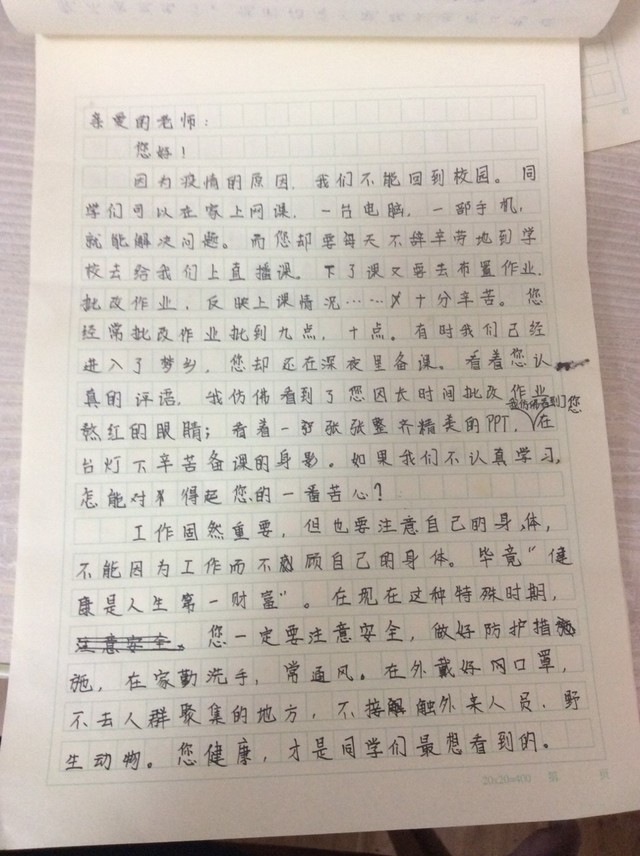 亲爱的老师：
您好！
因为疫情的原因，我们不能回到校园。同
学们可以在家上网课，一台电脑，一部手机，
就能解决问题。而您却要每天不辞辛劳地到学
校去给我们上直播课。下了课又要去布置作业，
批改作业，反映上课情况……十分辛苦。您
经常批改作业批到九点，十点。有时我们已经
进入了梦乡，您却还在深夜里备课。看着您认
真的评语，我仿佛看到了您因长时间批改作业
熬红的眼睛；看着一张张整齐精美的PPT，我仿佛看到您在
台灯下辛苦备课的身影。如果我们不认真学习，
怎能对得起您的一番苦心？
工作固然重要，但也要注意自己的身体，
不能因为工作而不顾自己的身体。毕竟“健
康是人生第一财富”。在现在这种特殊时期，
注意安全。您一定要注意安全，做好防护措
施，在家勤洗手，常通风。在外戴好口罩，
不去人群聚集的地方，不接触外来人员、野
生动物。您健康，才是同学们最想看到的。
20x20=400 第 页